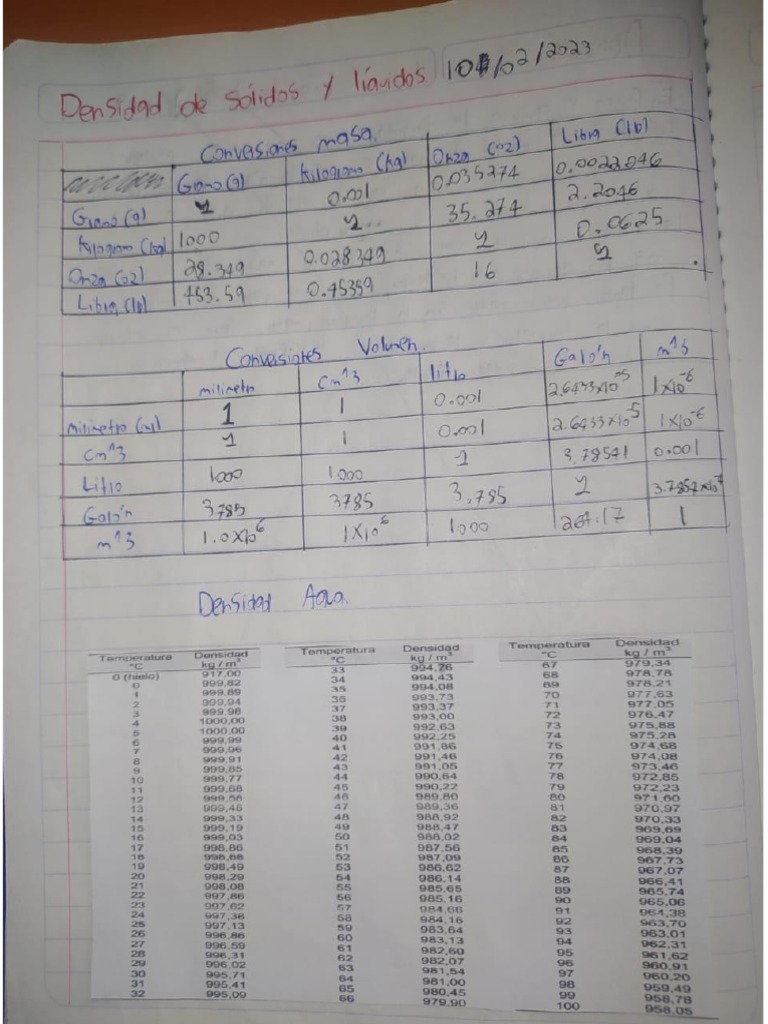 Densidad de sólidos y líquidos 10/02/2023
Conversiones masa.
Gramo (g) Kilogram (kg) Onza (oz) Libra (lb)
Gramo (g) 1 0.001 0.035274 0.0022046
Kilogram (kg) 1000 1 35.274 2.2046
Onza (oz) 28.349 0.028349 1 0.0625
Libra (lb) 453.59 0.45359 16 1
Conversiones Volumen.
milimetro Cm^3 litro Galón m^3
Milimetro (ml) 1 1 0.001 2.6433x10^-5 1x10^-6
Cm^3 1 1 0.001 2.6433x10^-5 1x10^-6
Litro 1000 1000 1 3.78541 0.001
Galón 3785 3785 3.785 1
m^3 1.0x10^6 1x10^6 1000 264.17 1
Densidad Agua
Temperatura °C Densidad kg / m³ Temperatura °C Densidad kg / m³ Temperatura °C Densidad kg / m³
0 (hielo) 917,00 33 994,76 67 979,34
0 999,82 34 994,43 68 978,78
1 999,89 35 994,08 69 978,21
2 999,94 36 993,73 70 977,63
3 999,98 37 993,37 71 977,05
4 1000,00 38 993,00 72 976,47
5 1000,00 39 992,63 73 975,88
6 999,99 40 992,25 74 975,28
7 999,96 41 991,86 75 974,68
8 999,91 42 991,46 76 974,08
9 999,85 43 991,05 77 973,46
10 999,77 44 990,64 78 972,85
11 999,68 45 990,22 79 972,23
12 999,58 46 989,80 80 971,60
13 999,46 47 989,36 81 970,97
14 999,33 48 988,92 82 970,33
15 999,19 49 988,47 83 969,69
16 999,03 50 988,02 84 969,04
17 998,86 51 987,56 85 968,39
18 998,68 52 987,09 86 967,73
19 998,49 53 986,62 87 967,07
20 998,29 54 986,14 88 966,41
21 998,08 55 985,65 89 965,74
22 997,86 56 985,16 90 965,06
23 997,62 57 984,66 91 964,38
24 997,38 58 984,16 92 963,70
25 997,13 59 983,64 93 963,01
26 996,86 60 983,13 94 962,31
27 996,59 61 982,60 95 961,62
28 996,31 62 982,07 96 960,91
29 996,02 63 981,54 97 960,20
30 995,71 64 981,00 98 959,49
31 995,41 65 980,45 99 958,78
32 995,09 66 979,90 100 958,05